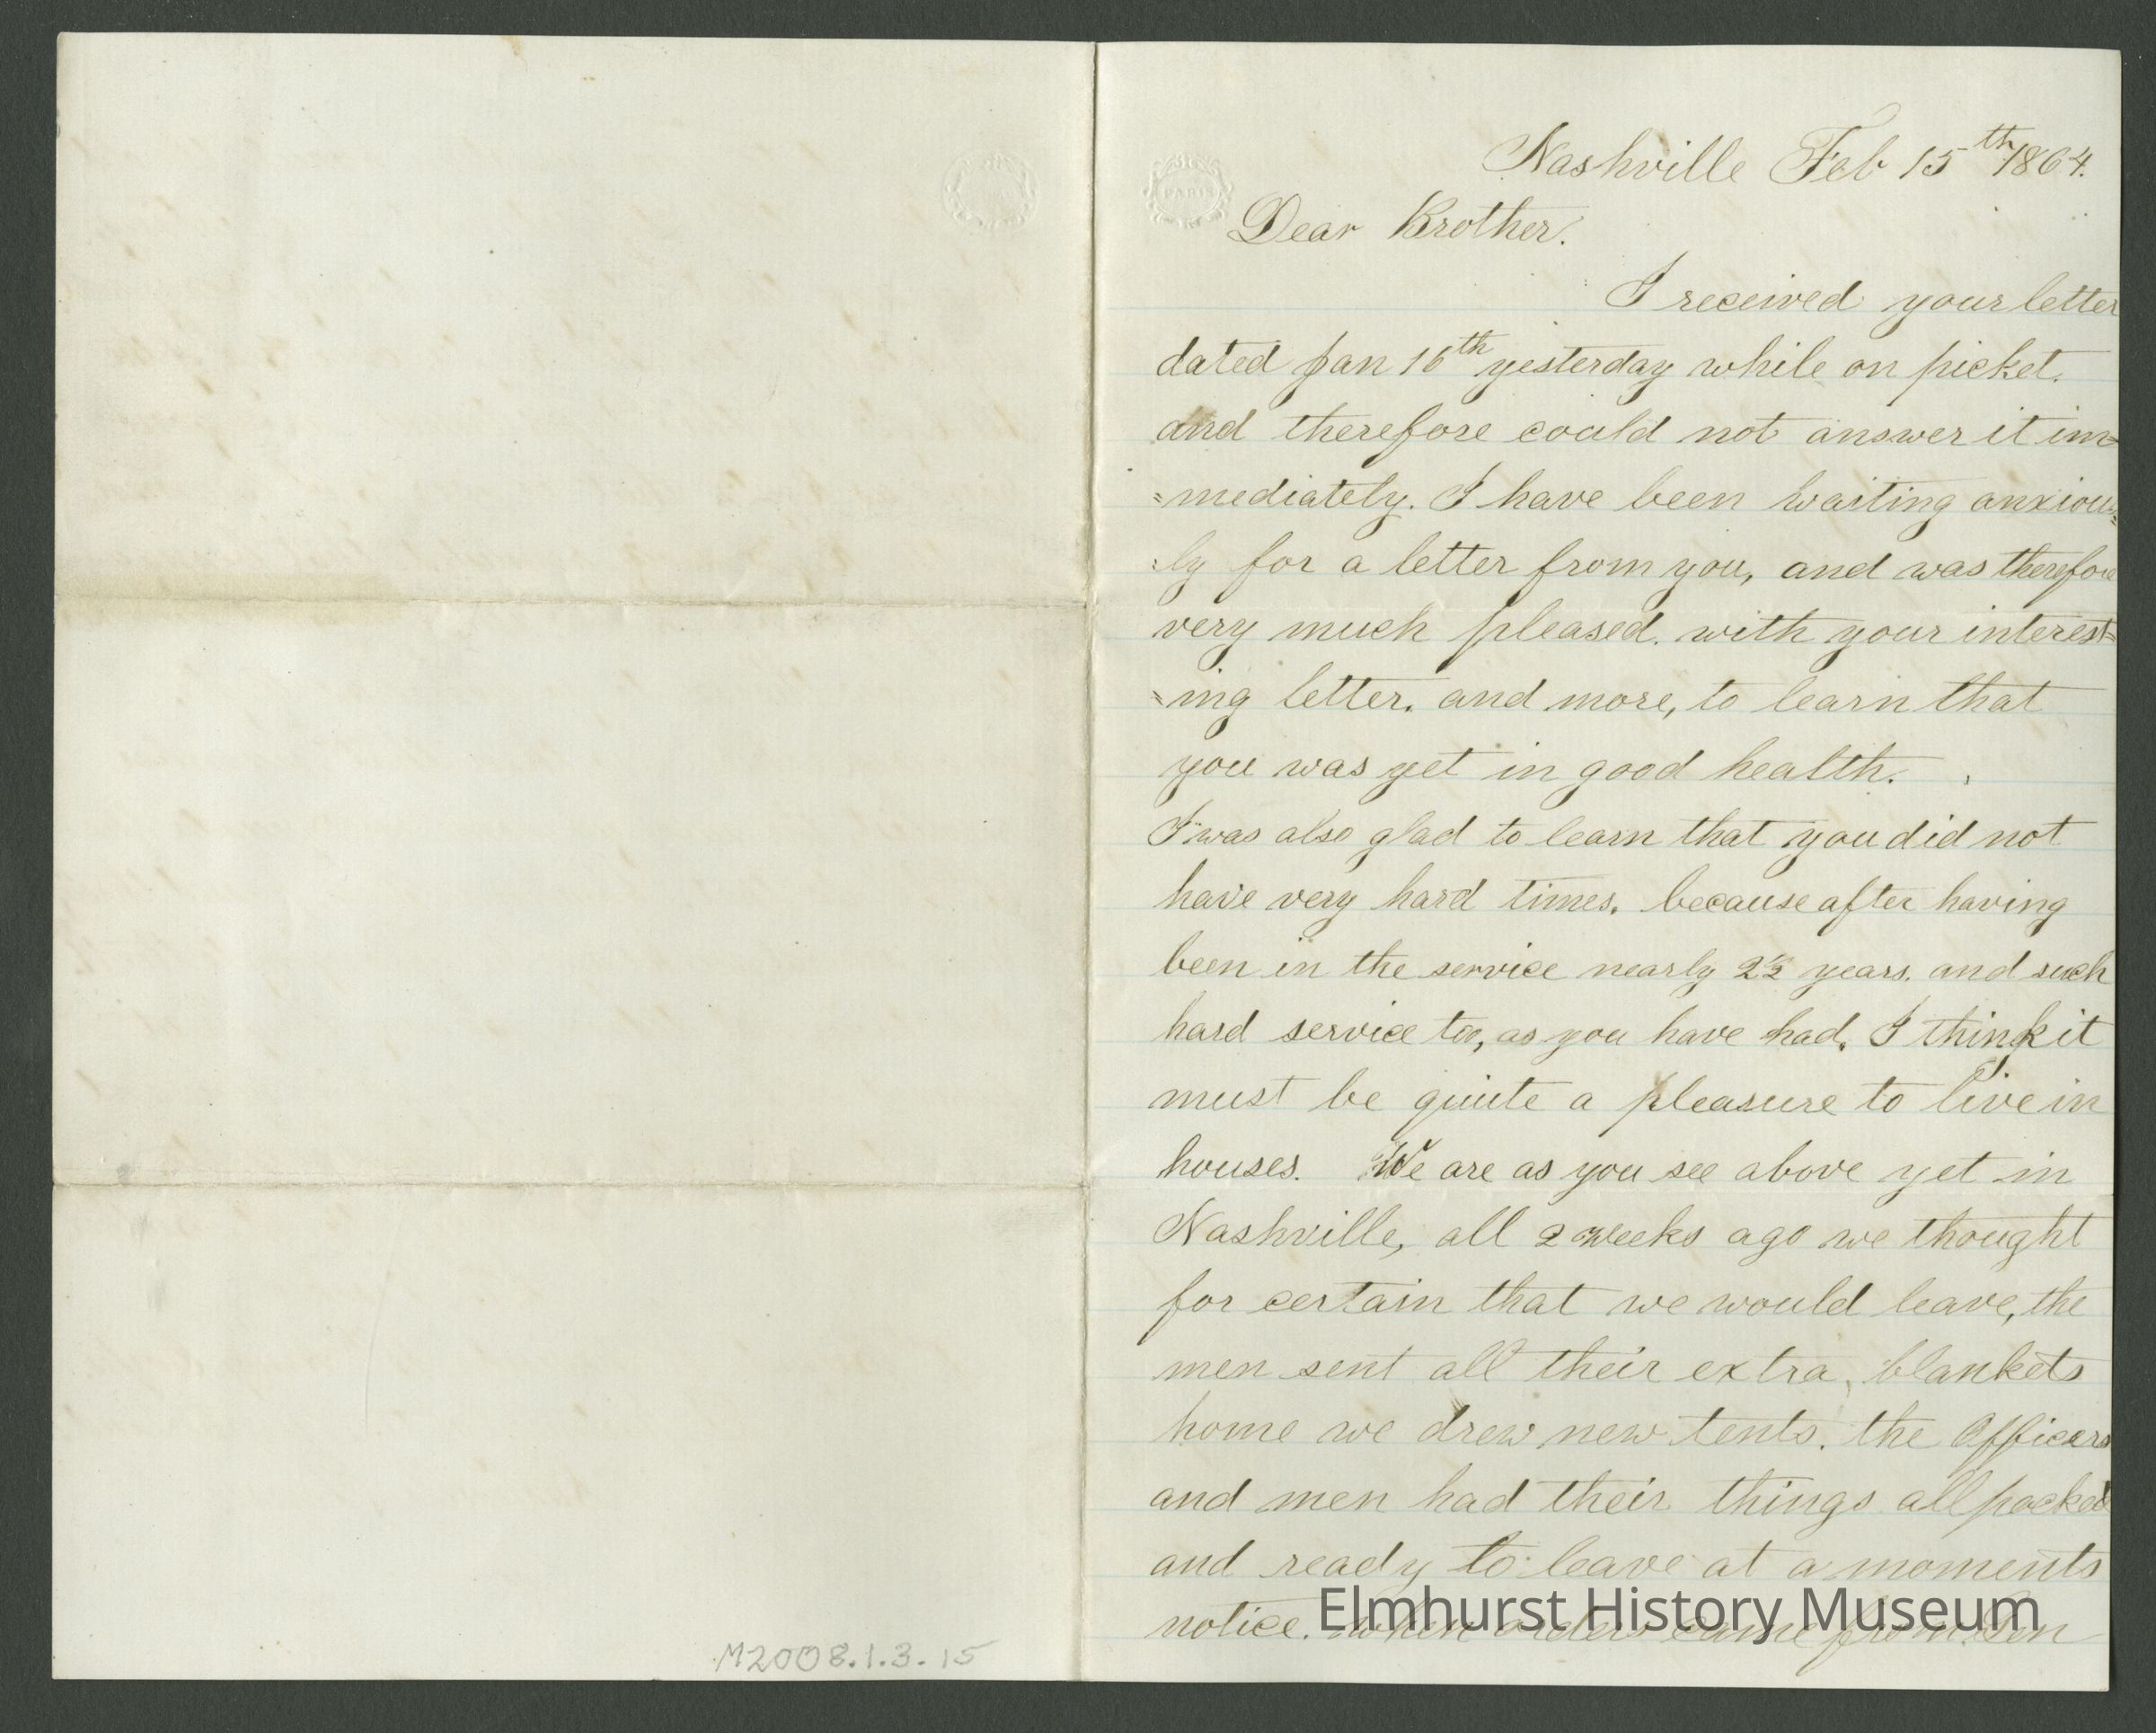 Nashville Feb 15th 1864.
PARIS
Dear Brother.
I received your letter
dated Jan 16th yesterday while on picket.
and therefore could not answer it im-
=mediately. I have been waiting anxious=
=ly for a letter from you, and was therefore
very much pleased. with your interest=
=ing letter. and more, to learn that
you was yet in good health.
I was also glad to learn that you did not
have very hard times. because after having
been in the service nearly 2½ years. and such
hard service too, as you have had. I think it
must be quite a pleasure to live in
houses. We are as you see above yet in
Nashville, all 2 weeks ago we thought
for certain that we would leave, the
men sent all their extra blankets
home we drew new tents. the Officers
and men had their things all packed
and ready to leave at a moments
notice. when orders came from Gen
Elmhurst History Museum
M2008.1.3.15